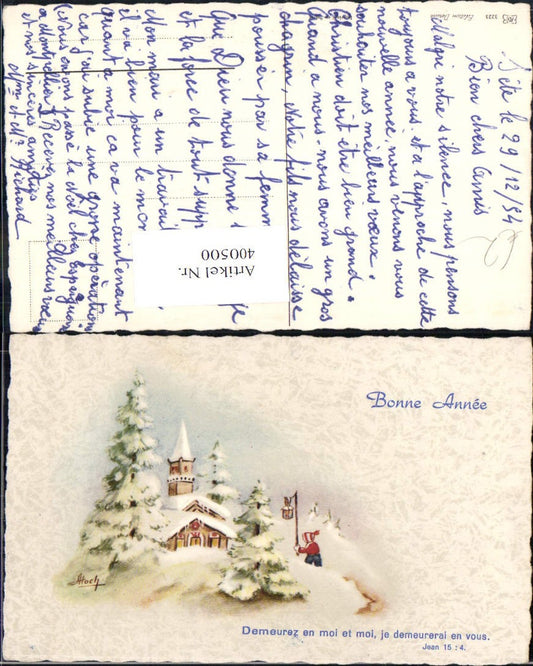 Sète le 29/12/54
Bien chers Amis
Malgré notre silence, nous pensons
toujours à vous. et a l'approche de cette
nouvelle année, nous venons vous
souhaiter nos meilleurs vœux.
Christian doit être bien grand.
Quand a nous- nous avons un gros
chagrin, Notre fils nous délaisse
pousser par sa femme
Que Dieu nous donne
et la force de tout supp
Mon mari a un travail
il va bien pour le mo
Quant a moi ca va maintenant
car j'ai subie une grave opération
nous avons passé la Noël chez
a Montpellier. Recevez nos meilleurs vœux
et nos sincères amitiés
Mme et Mr Richard
3223
Artikel Nr.
400500
Bonne Année
Demeurez en moi et moi, je demeurerai en vous.
Jean 15 : 4.